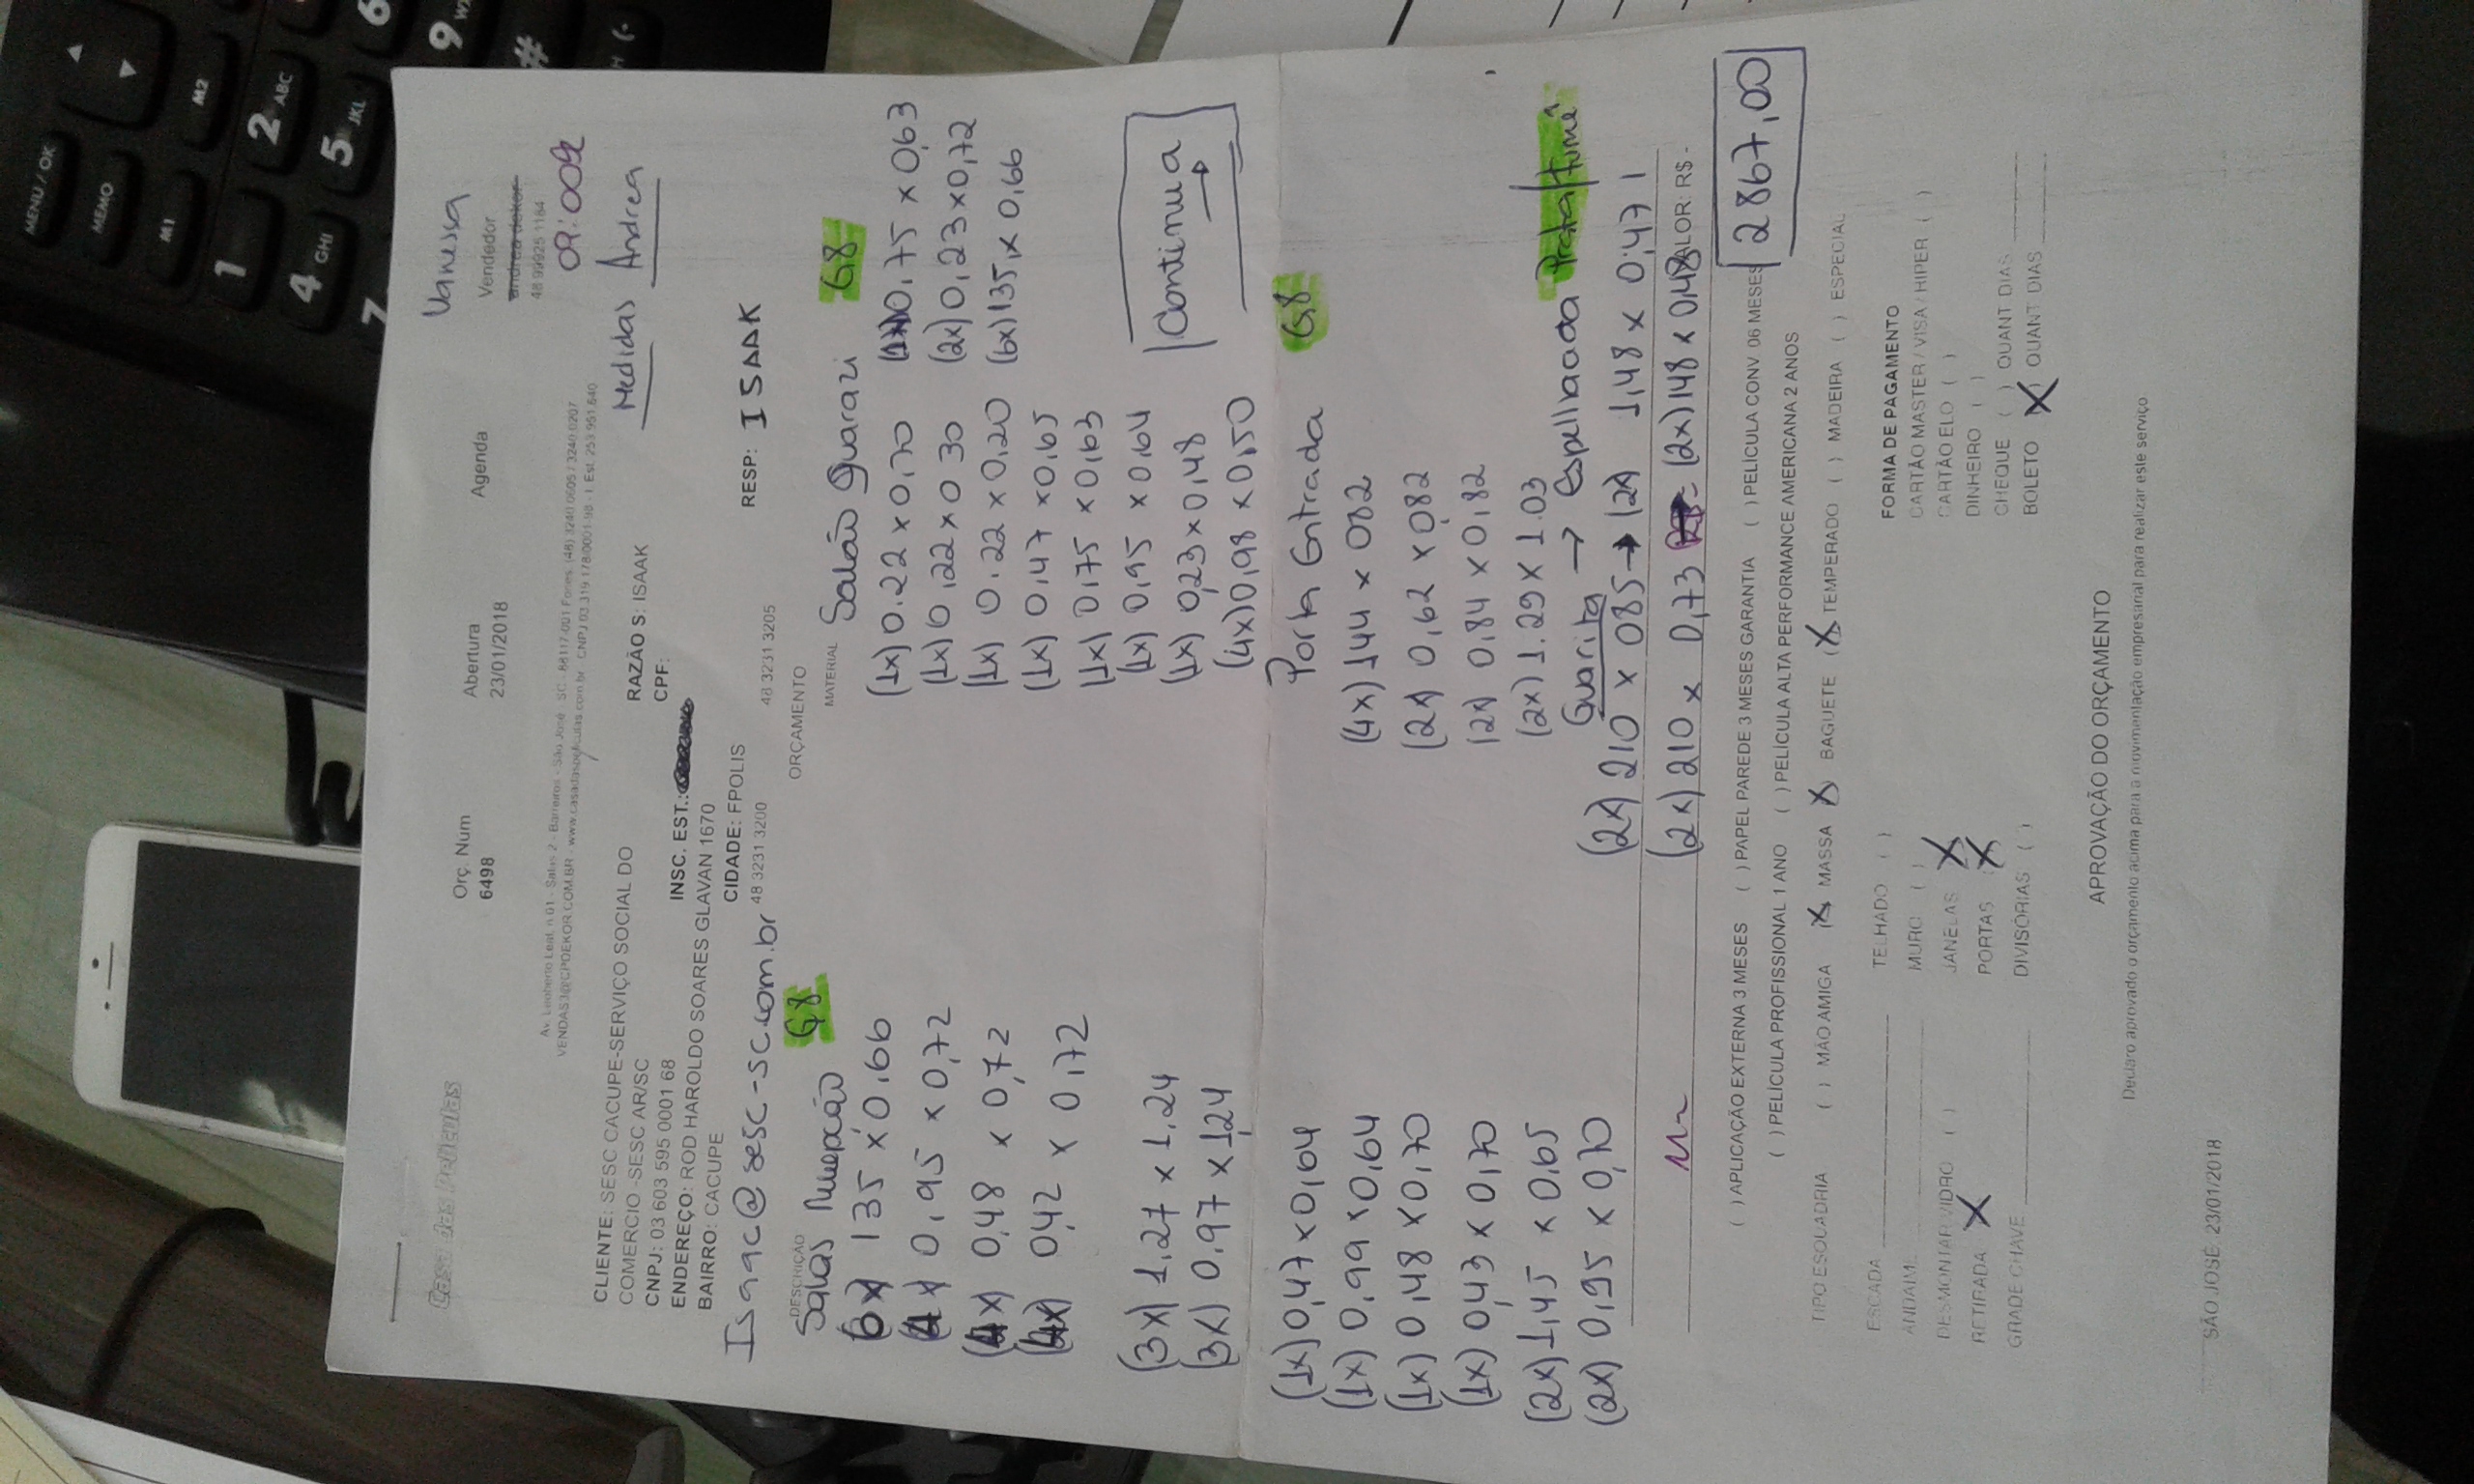 Casa das Películas
Orç. Núm
6498
Abertura
23/01/2018
Agenda
Vanessa
Vendedor
andrea dekor
48 99925 1184
09:00hs
Av. Leoberto Leal, n.01 - Salas 2 - Barreiros - São José - SC - 88117-001 Fones: (48) 3240.0605 / 3240.0207
VENDAS3@CPDEKOR.COM.BR - www.casadaspeliculas.com.br CNPJ 03.319.178/0001-98 - I. Est. 253.951.640
Medidas Andrea
CLIENTE: SESC CACUPE-SERVIÇO SOCIAL DO
COMERCIO -SESC AR/SC
CNPJ: 03 603 595 0001 68
INSC. EST.:
ENDEREÇO: ROD HAROLDO SOARES GLAVAN 1670
BAIRRO: CACUPE
CIDADE: FPOLIS
RAZÃO S: ISAAK
CPF:
RESP: ISAAK
Isaac@sesc-sc.com.br
48 3231 3200
48 3231 3205
ORÇAMENTO
DESCRIÇÃO
MATERIAL
Salas G8
6x) 135 x 0,66
(4x) 0,95 x 0,72
(4x) 0,48 x 0,72
(4x) 0,42 x 0,72
(3x) 1,27 x 1,24
(3x) 0,97 x 1,24
(1x) 0,47 x 0,64
(1x) 0,99 x 0,64
(1x) 0,48 x 0,70
(1x) 0,43 x 0,70
(2x) 1,45 x 0,65
(2x) 0,95 x 0,70
Salão Guarazi G8
(1x) 0.22 x 0,70
(1x) 0,22 x 0 30
(1x) 0,22 x 0,20
(1x) 0,47 x 0,65
(1x) 0,75 x 0,63
(1x) 0,95 x 0,64
(1x) 0,23 x 0,48
(4x) 0,98 x 0,50
(1x) 0,75 x 0,63
(2x) 0,23 x 0,72
(6x) 135 x 0,66
Continua →
Porta Entrada G8
(4x) 144 x 082
(2x) 0,62 x 082
(2x) 0,84 x 0,82
(2x) 1.29 x 1.03
Guarita → Espelhada Prata/fumê
(2x) 210 x 085 → (2x) 1,48 x 0,47
(2x) 210 x 0,73 (2x) 148 x 0,48
VALOR: R$-
2867,00
( ) APLICAÇÃO EXTERNA 3 MESES ( ) PAPEL PAREDE 3 MESES GARANTIA ( ) PELÍCULA CONV 06 MESES
( ) PELÍCULA PROFISSIONAL 1 ANO ( ) PELÍCULA ALTA PERFORMANCE AMERICANA 2 ANOS
TIPO ESQUADRIA ( ) MÃO AMIGA (X MASSA X) BAGUETE (X TEMPERADO ( ) MADEIRA ( ) ESPECIAL
ESCADA
ANDAIM:
DESMONTAR VIDRO ( )
RETIRADA X
GRADE CHAVE
TELHADO ( )
MURO ( )
JANELAS X
PORTAS X
DIVISÓRIAS ( )
FORMA DE PAGAMENTO
CARTÃO MASTER / VISA / HIPER ( )
CARTÃO ELO ( )
DINHEIRO ( )
CHEQUE ( ) QUANT DIAS
BOLETO X) QUANT DIAS
APROVAÇÃO DO ORÇAMENTO
Declaro aprovado o orçamento acima para a movimentação empresarial para realizar este serviço
SÃO JOSÉ: 23/01/2018
MENU / OK
MEMO
M1
M2
1
2 ABC
4 GHI
5 JKL
6
7
9
#